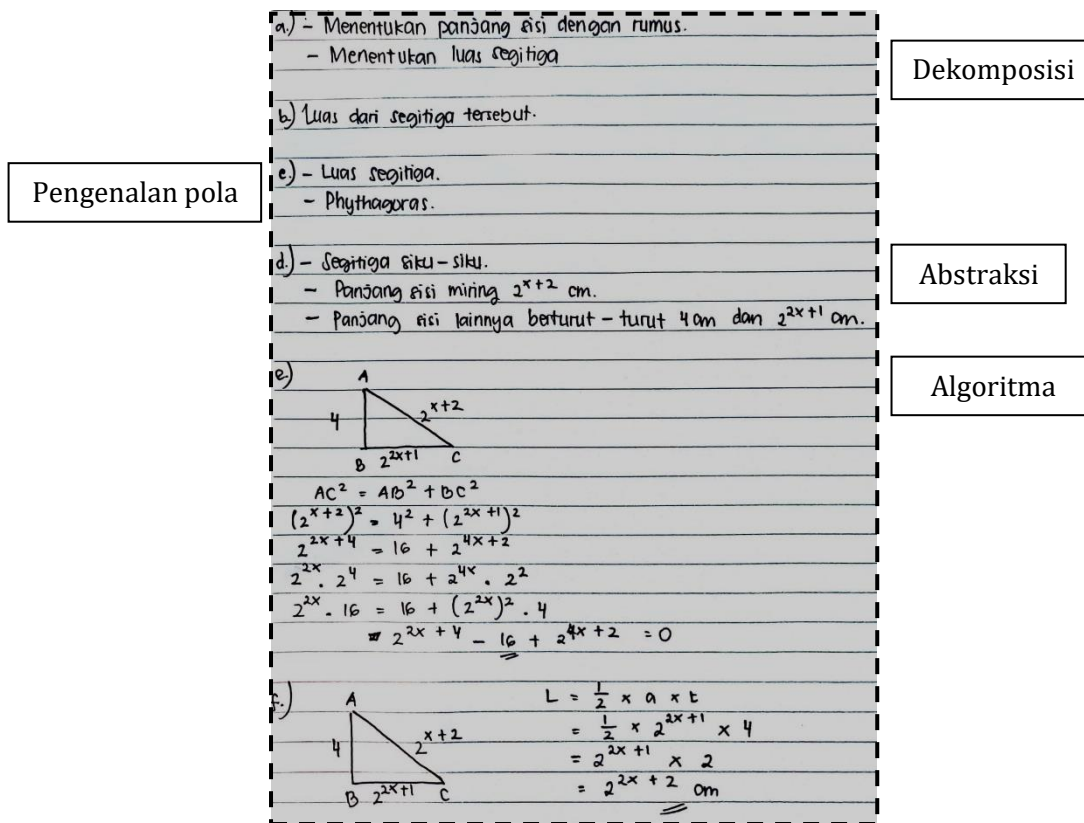 a.) - Menentukan panjang sisi dengan rumus.
- Menentukan luas segitiga
Dekomposisi
b.) Luas dari segitiga tersebut.
Pengenalan pola
c.) - Luas segitiga.
- Phythagoras.
d.) - Segitiga siku-siku.
- Panjang sisi miring 2^{x+2} cm.
- Panjang sisi lainnya berturut-turut 4 cm dan 2^{2x+1} cm.
Abstraksi
Algoritma
e.)
A
4
2^{x+2}
B 2^{2x+1} C
AC² = AB² + BC²
(2^{x+2})² = 4² + (2^{2x+1})²
2^{2x+4} = 16 + 2^{4x+2}
2^{2x} . 2^4 = 16 + 2^{4x} . 2²
2^{2x} . 16 = 16 + (2^{2x})² . 4
2^{2x+4} - 16 + 2^{4x+2} = 0
f.)
A
4
2^{x+2}
B 2^{2x+1} C
L = 1/2 x a x t
= 1/2 x 2^{2x+1} x 4
= 2^{2x+1} x 2
= 2^{2x+2} cm